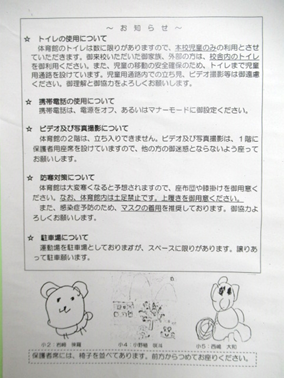 ～ お 知 ら せ ～
☆ トイレの使用について
体育館のトイレは数に限りがありますので、本校児童のみの利用とさせ
ていただきます。御来校いただいた御家族、外部の方は、校舎内のトイレ
を御利用ください。また、児童の移動の安全確保のため、トイレまで児童
用通路を設けています。児童用通路内での立ち見、ビデオ撮影等は御遠慮
ください。御理解と御協力をよろしくお願いします。
☆ 携帯電話の使用について
携帯電話は、電源をオフ、あるいはマナーモードに御設定ください。
☆ ビデオ及び写真撮影について
体育館の２階は、立ち入りできません。ビデオ及び写真撮影は、１階に
保護者用座席を設けていますので、他の方の御迷惑とならないよう座って
お願いします。
☆ 防寒対策について
体育館は大変寒くなると予想されますので、座布団や膝掛けを御用意く
ださい。なお、体育館内は土足禁止です。上履きを御用意ください。
また、感染症予防のため、マスクの着用を推奨しております。御協力よ
ろしくお願いします。
☆ 駐車場について
運動場を駐車場としておりますが、スペースに限りがあります。譲りあ
って駐車願います。
小２ 岩崎
小４ 小野
小５ 西嶋 大和
保護者席には、椅子を並べてあります。前方からつめてお座りください。